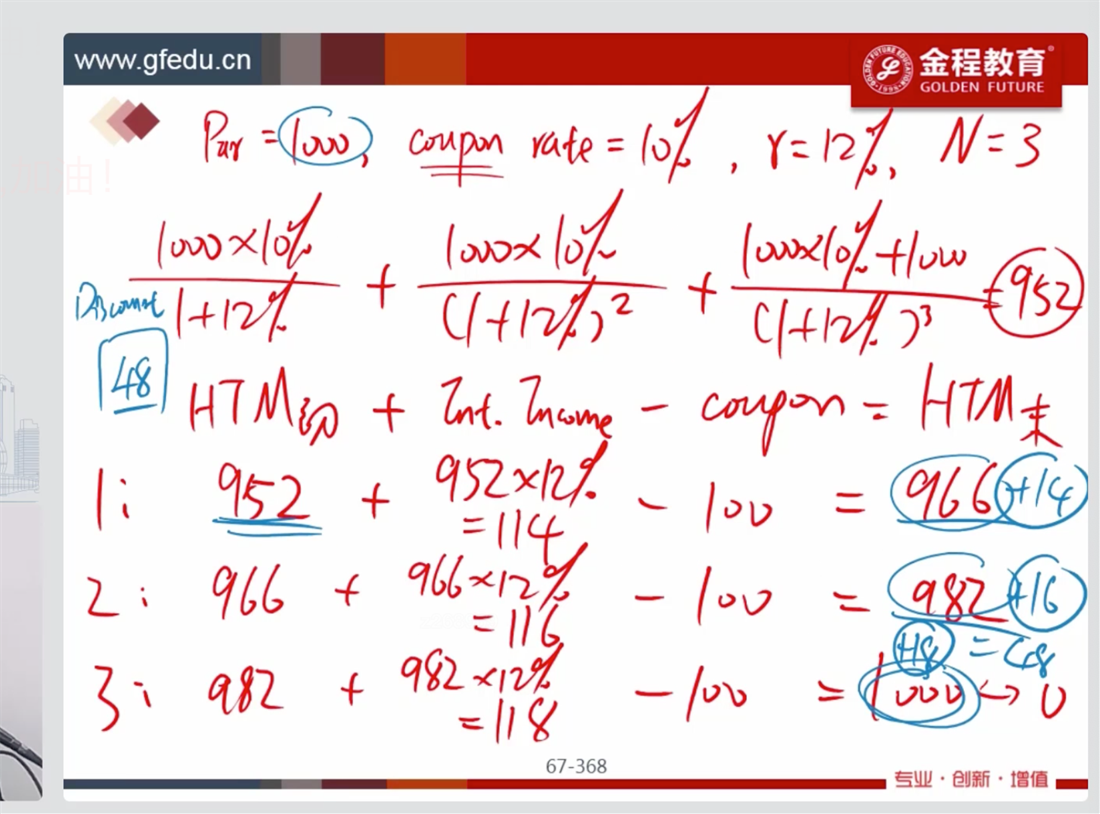 www.gfedu.cn
金程教育
GOLDEN FUTURE
Par = 1000, coupon rate = 10%, r = 12%, N = 3
1000×10% / 1+12% + 1000×10% / (1+12%)² + 1000×10%+1000 / (1+12%)³ = 952
Discount
48
HTM初 + Int. Income - coupon = HTM末
1: 952 + 952×12% = 114 - 100 = 966 +14
2: 966 + 966×12% = 116 - 100 = 982 +16
+18 = 48
3: 982 + 982×12% = 118 - 100 = 1000 → 0
67-368
专业·创新·增值